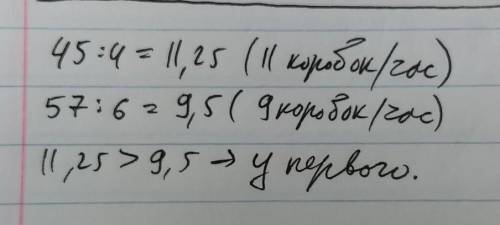 45:4 = 11,25 (11 коробок/час)
57:6 = 9,5 ( 9 коробок/час)
11,25 > 9,5 → у первого.